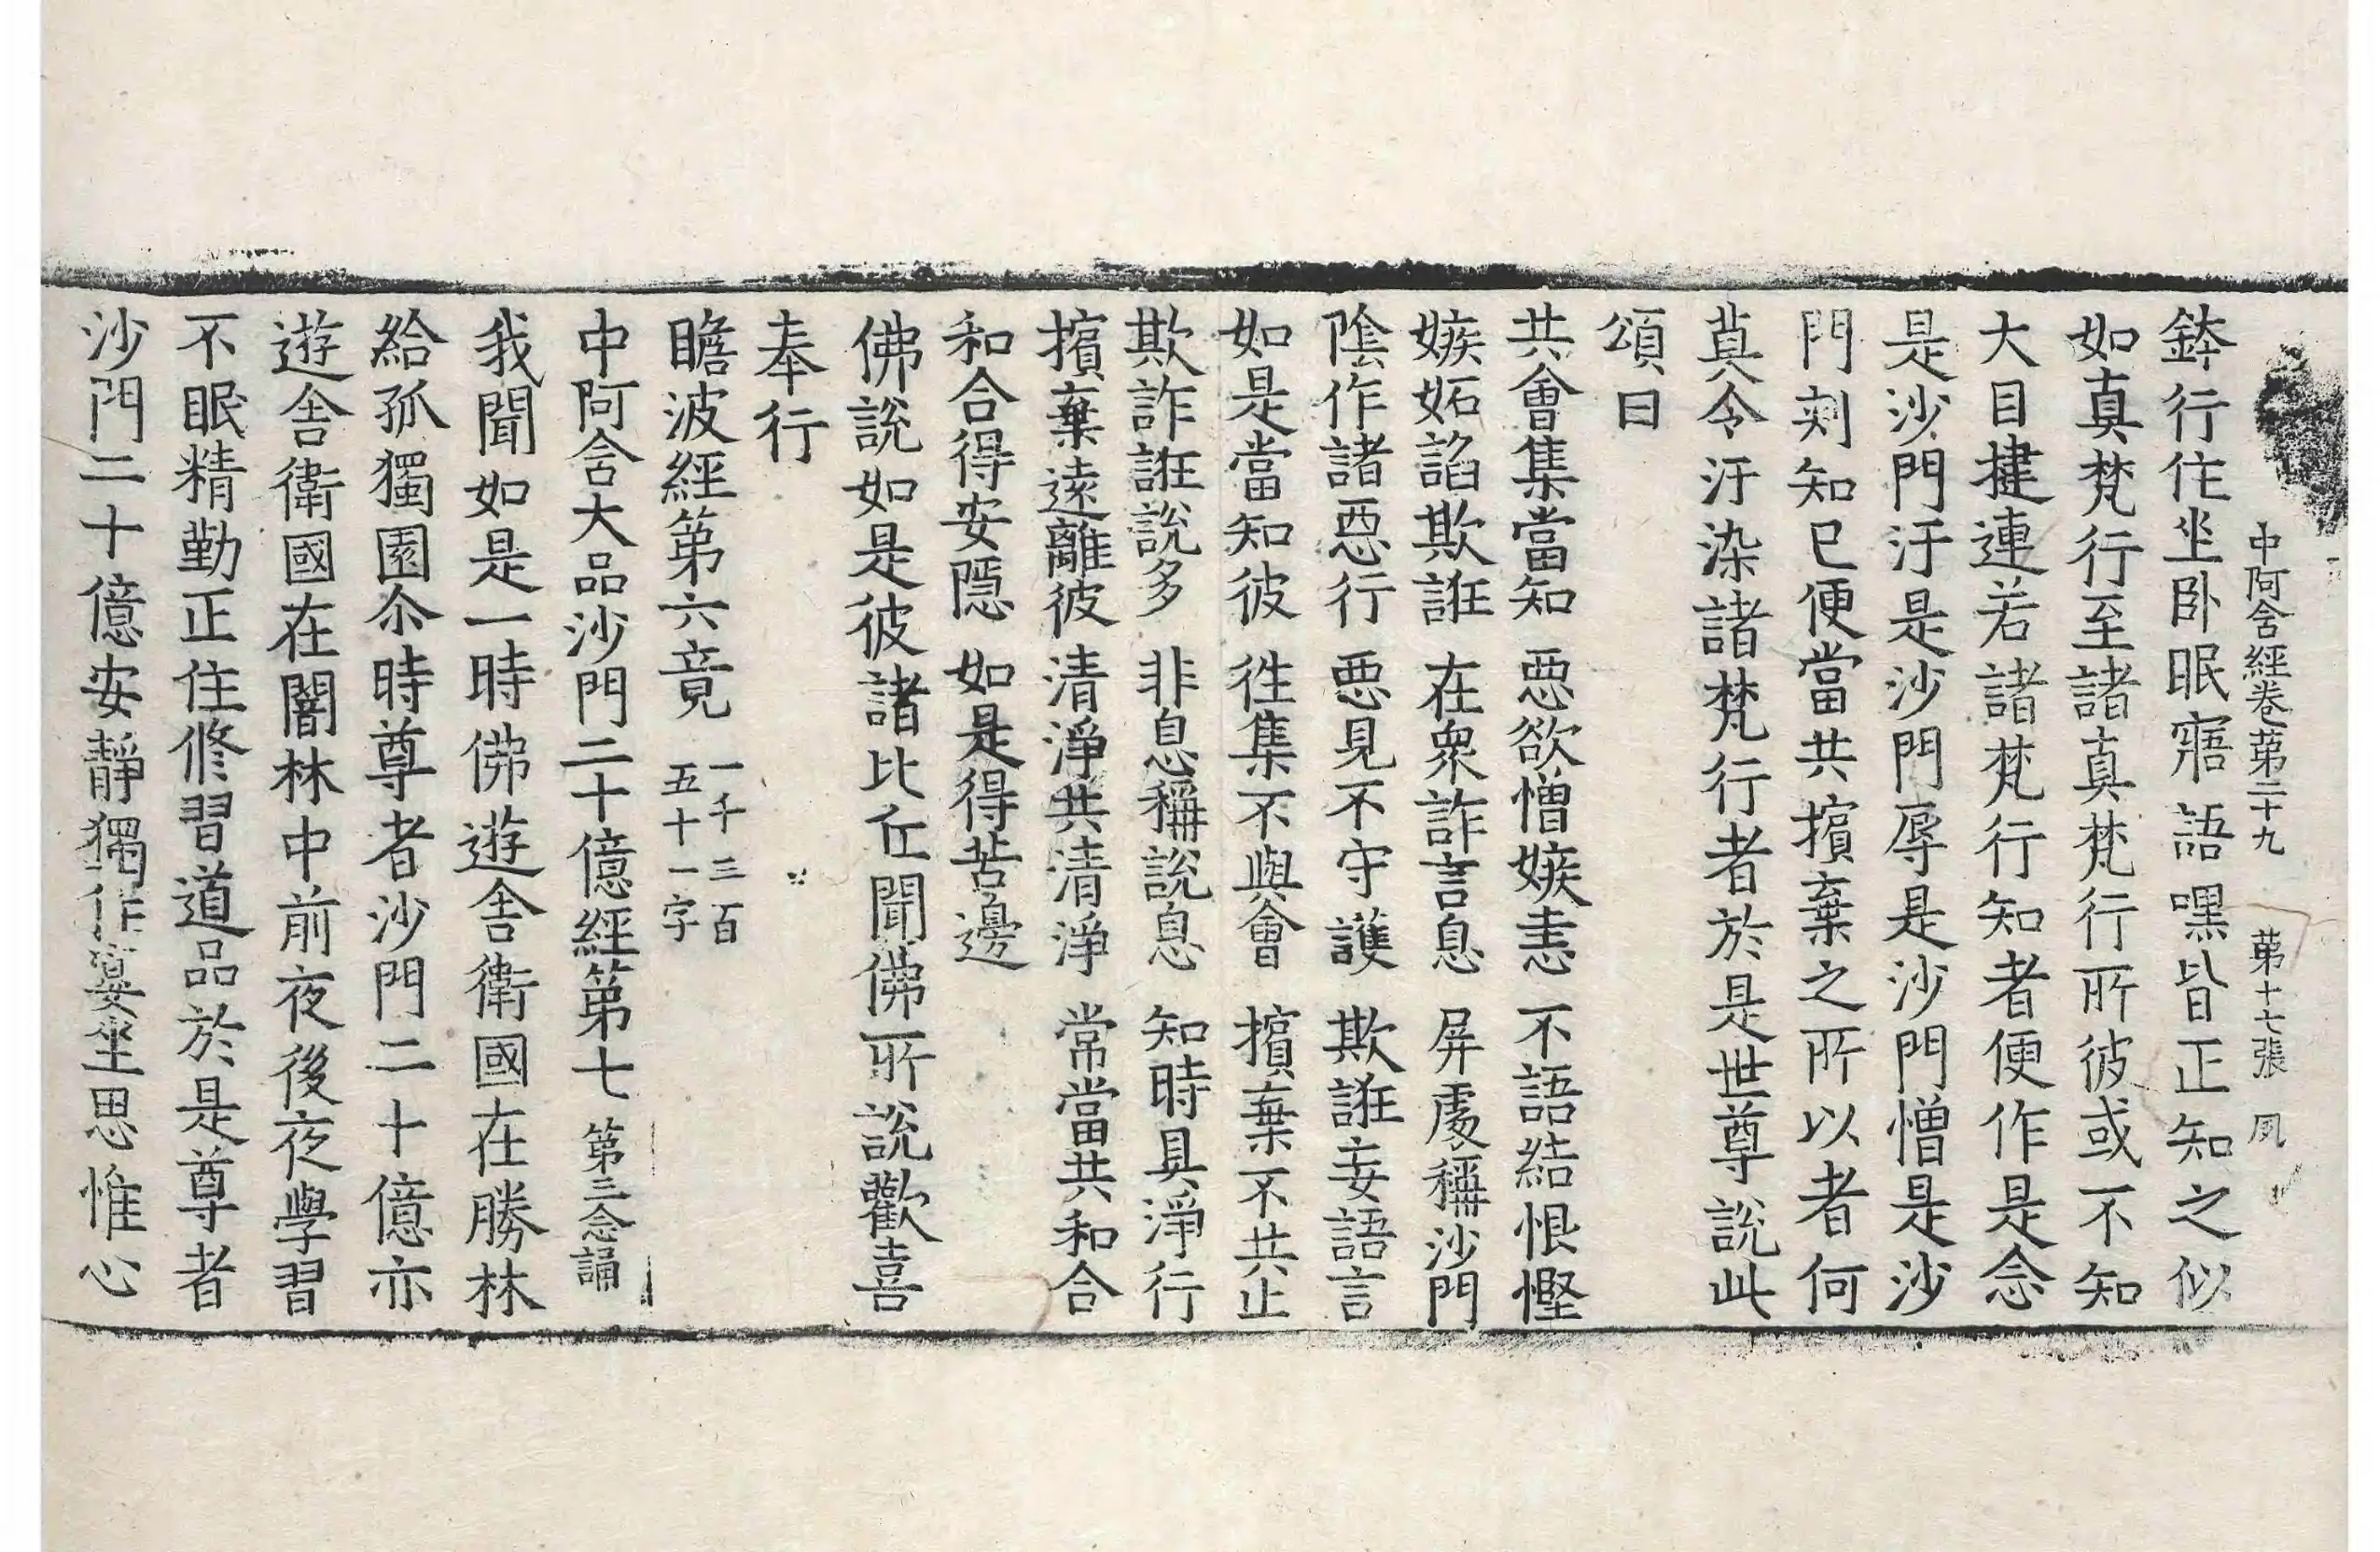 中阿含經卷第二十九 第十七張 夙
鉢行住坐卧眠寤語嘿皆正知之似
如真梵行至諸真梵行所彼或不知
大目揵連若諸梵行知者便作是念
是沙門汙是沙門辱是沙門憎是沙
門刺知已便當共擯棄之所以者何
莫令汙染諸梵行者於是世尊說此
頌曰
共會集當知 惡欲憎嫉恚 不語結恨慳
嫉妬諂欺誑 在衆詐言息 屏處稱沙門
陰作諸惡行 惡見不守護 欺誑妄語言
如是當知彼 徃集不與會 擯棄不共止
欺詐誑說多 非息稱說息 知時具淨行
擯棄遠離彼 清淨共清淨 常當共和合
和合得安隱 如是得苦邊
佛說如是彼諸比丘聞佛所說歡喜
奉行
瞻波經第六竟 一千三百五十一字
中阿含大品沙門二十億經第七 第三念誦
我聞如是一時佛遊舍衛國在勝林
給孤獨園尒時尊者沙門二十億亦
遊舍衛國在闇林中前夜後夜學習
不眠精勤正住修習道品於是尊者
沙門二十億安靜獨作宴坐思惟心